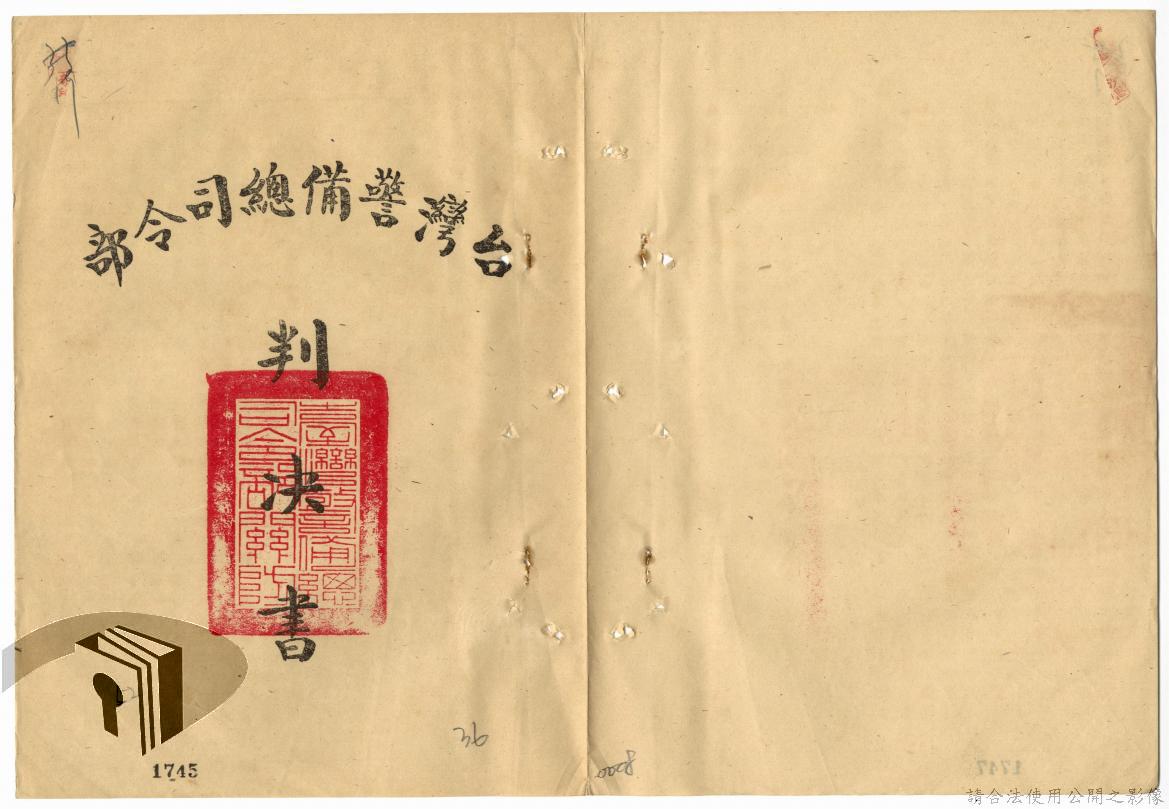 台灣警備總司令部
判決書
臺灣警備總
司令部關防
1745
1747
請合法使用公開之影像